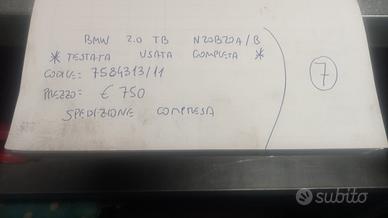 BMW 2.0 TB N20B20A/B
* TESTATA USATA COMPLETA *
CODICE: 7584313/11
PREZZO: € 750
SPEDIZIONE COMPRESA
7
subito